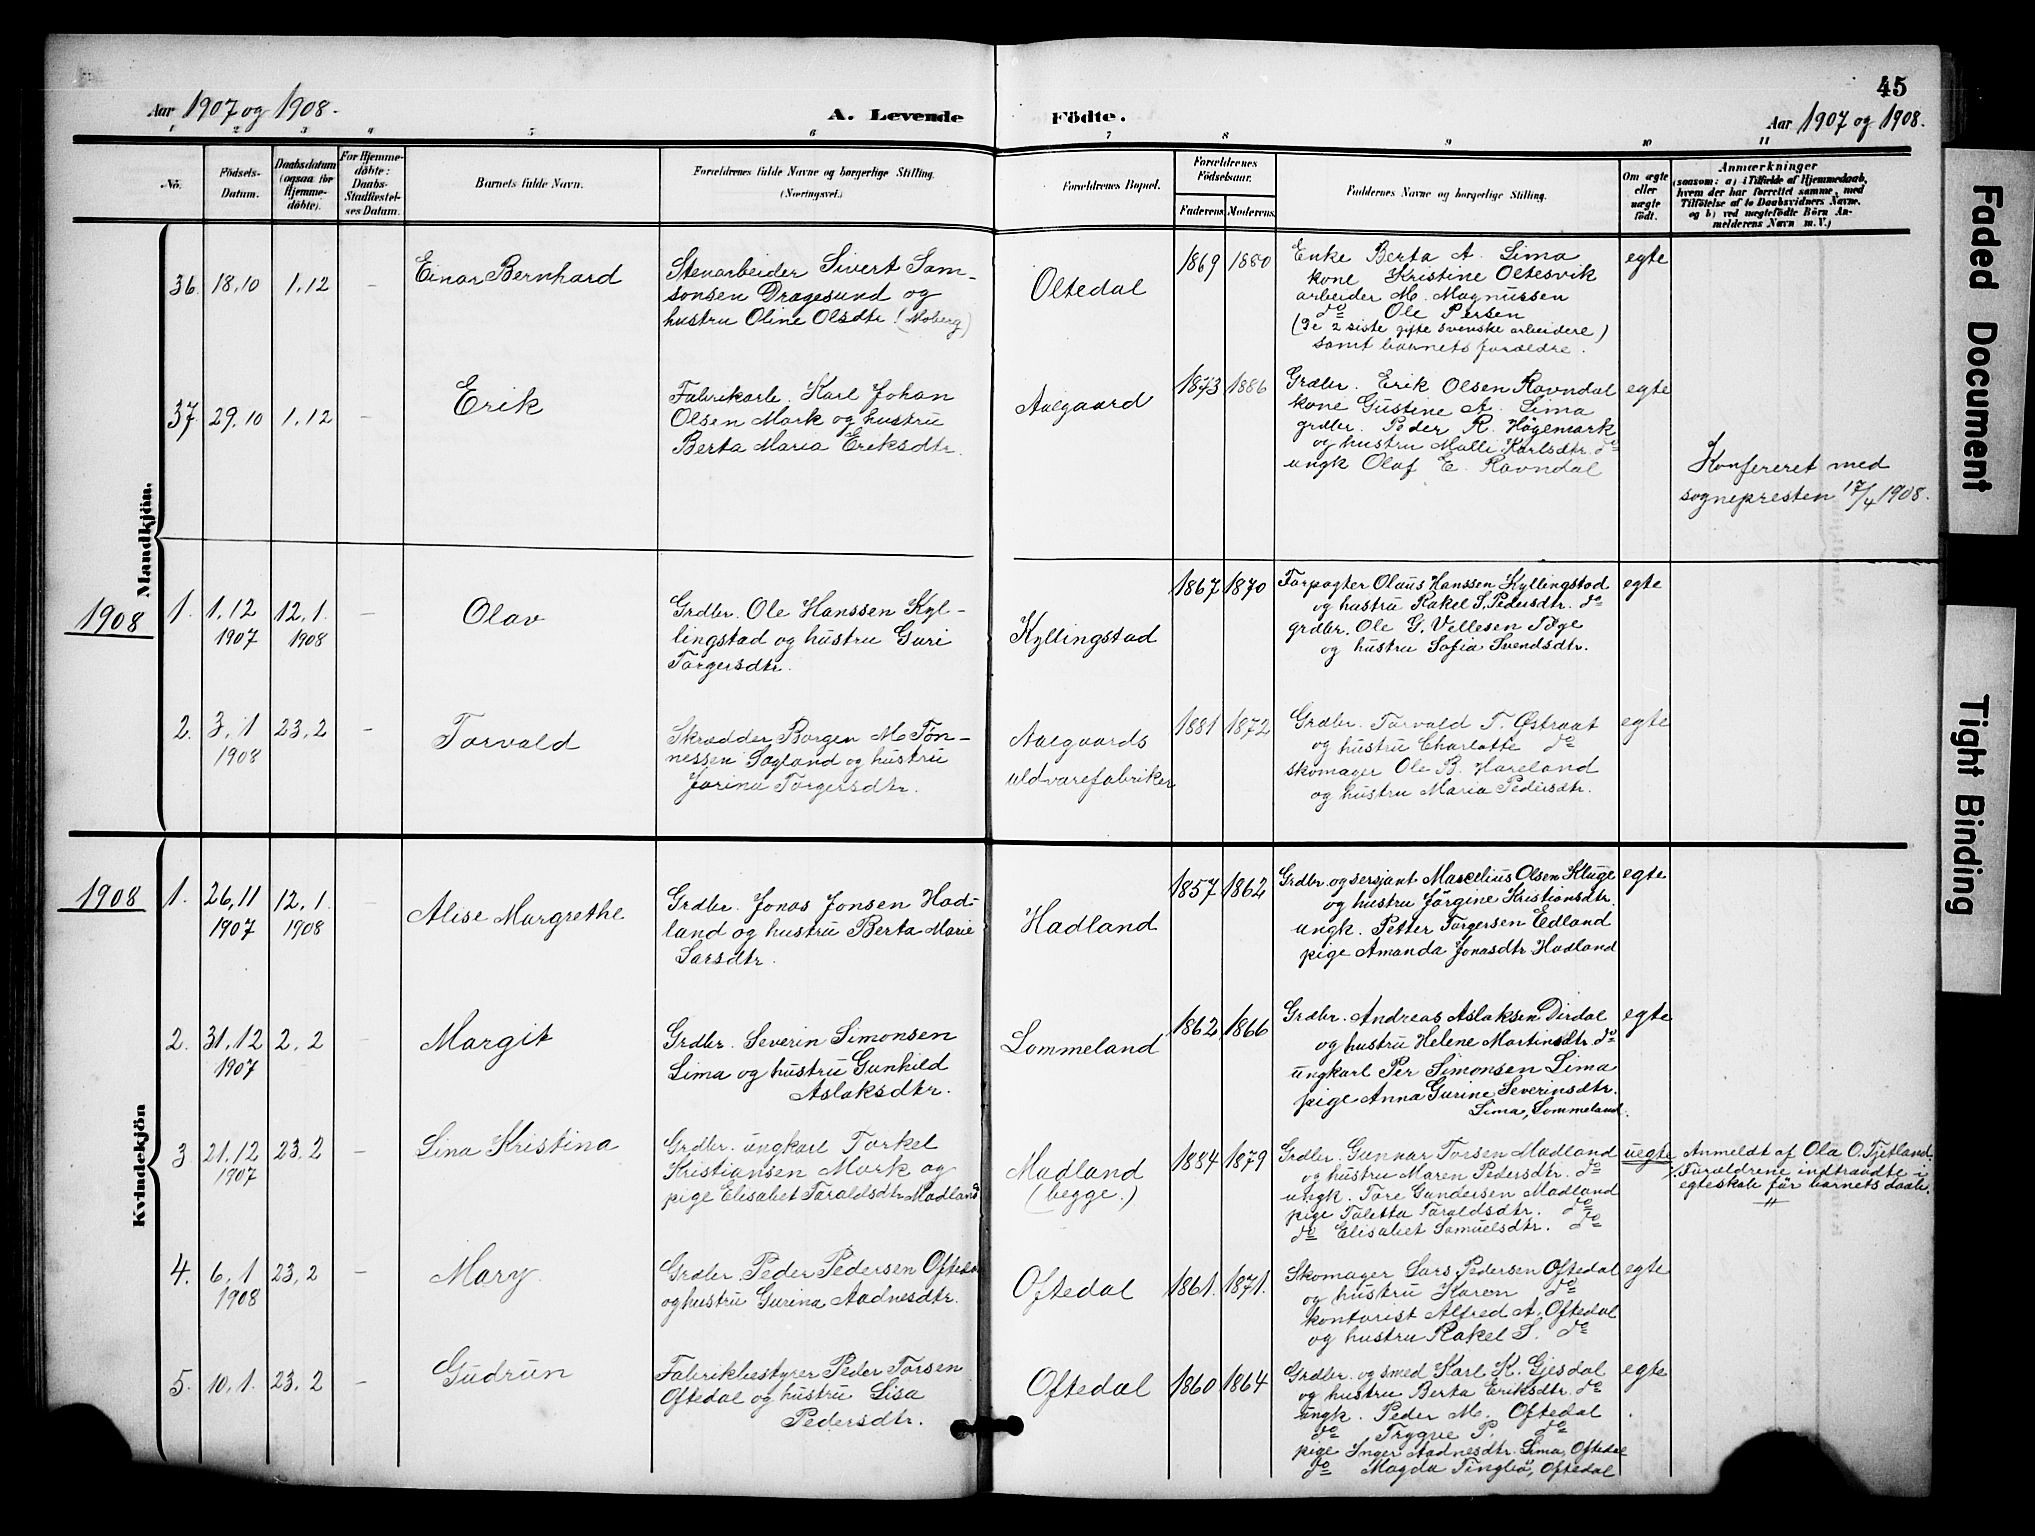 45
Aar 1907 og 1908.
A. Levende Födte.
Aar 1907 og 1908.
1 2 3 4 5 6 7 8 9 10 11
No.
Födsels-
Datum.
Daabsdatum
(ogsaa for
Hjemme-
döbte).
For Hjemme-
döbte:
Daabs-
Stadfæstel-
ses Datum.
Barnets fulde Navn.
Forældrenes fulde Navne og borgerlige Stilling.
(Næringsvei.)
Forældrenes Bopæl.
Forældrenes
Födselsaar.
Faderens Moderens
Faddernes Navne og borgerlige Stilling.
Om ægte
eller
uægte
födt.
Anmærkninger
(saasom: a) i Tilfælde af Hjemmedaab,
hvem der har forrettet samme, med
Tilföielse af to Daabsvidners Navne,
og b) ved uægtefödte Börn An-
melderens Navn m. V.)
Mandkjön.
36. 18,10 1,12 - Einar Bernhard
Stenarbeider Sivert Sam-
sonsen Dragesund og
hustru Oline Olsdtr. (Moberg)
Oltedal
1869 1880
Enke Berta A. Lima
kone Kristine Oltesvik
arbeider M. Magnussen
do Ole Persen
(De 2 siste gifte svenske arbeidere)
samt barnets forældre.
egte
37. 29,10 1,12 - Erik
Fabrikarb. Karl Johan
Olsen Mork og hustru
Berta Maria Eriksdtr.
Aalgaard
1873 1886
Grdbr. Erik Olsen Ravndal
kone Gustine A. Lima
grdbr. Peder R. Høgemark
og hustru Malli Karlsdtr. do
ungk Olaf E. Ravndal
egte
Konfereret med
sognepresten 17/4 1908.
1908
1. 1,12 1907 12,1 1908 - Olav
Grdbr. Ole Hanssen Kyl-
lingstad og hustru Guri
Torgersdtr.
Kyllingstad
1867 1870
Forpagter Olaus Hanssen Kyllingstad
og hustru Rakel S. Pedersdtr. do
grdbr. Ole G. Vellesen Tóge
og hustru Sofia Svendsdtr.
egte
2. 3,1 1908 23,2 - Torvald
Skrædder Borgen M. Tön-
nessen Sagland og hustru
Jorina Torgersdtr.
Aalgaards
uldvarefabriker
1881 1872
Grdbr. Torvald T. Østraat
og hustru Charlotte do
skomager Ole B. Hareland
og hustru Maria Pedersdtr.
egte
Kvindekjön
1908
1. 26,11 1907 12,1 1908 Alise Margrethe
Grdbr. Jonas Jonsen Had-
land og hustru Berta Marie
Larsdtr.
Hadland
1857 1862
Grdbr. og sersjant Marselius Olsen Kluge
og hustru Jörgine Kristiansdtr.
ungk. Petter Torgersen Edland
pige Amanda Jonasdtr Hadland
egte
2. 31,12 1907 2,2 Margit
Grdbr. Severin Simonsen
Lima og hustru Gunhild
Aslaksdtr.
Lommeland
1862 1866
Grdbr. Andreas Aslaksen Dirdal
og hustru Helene Martinsdtr. do
ungkarl Per Simonsen Lima
pige Anna Gurine Severinsdtr.
Lima, Lommeland.
egte
3 21,12 1907 23,2 - Lina Kristina
Grdbr. ungkarl Torkel
Kristiansen Mork og
pige Elisabet Taraldsdtr Madland
Madland
(begge.)
1884 1879
Grdbr. Gunnar Torsen Madland
og hustru Maren Pedersdtr. do
ungk. Tore Gundersen Madland
pige Taletta Taraldsdtr. do
do Elisabet Samuelsdtr. do
uegte
Anmeldt af Ola O. Tjetland.
Forældrene indtraadte i
egteskab før barnets daab.
4. 6,1 1908 23,2 - Mary
Grdbr. Peder Pedersen Oftedal
og hustru Gurina Aadnesdtr.
Oftedal
1861. 1871.
Skomager Lars Pedersen Oftedal
og hustru Karen do
kontorist Alfred A. Oftedal
og hustru Rakel S. do
egte
5. 10,1. 23,2 - Gudrun
Fabrikbestyrer Peder Torsen
Oftedal og hustru Lisa
Pedersdtr.
Oftedal
1860 1864
Grdbr. og smed Karl K. Gjesdal
og hustru Berta Eriksdtr. do
ungk. Peder M. Oftedal
do Trygve P. do
pige Inger Aadnesdtr. Lima, Oftedal
do Magda Tingbø, Oftedal
egte
Faded Document
Tight Binding